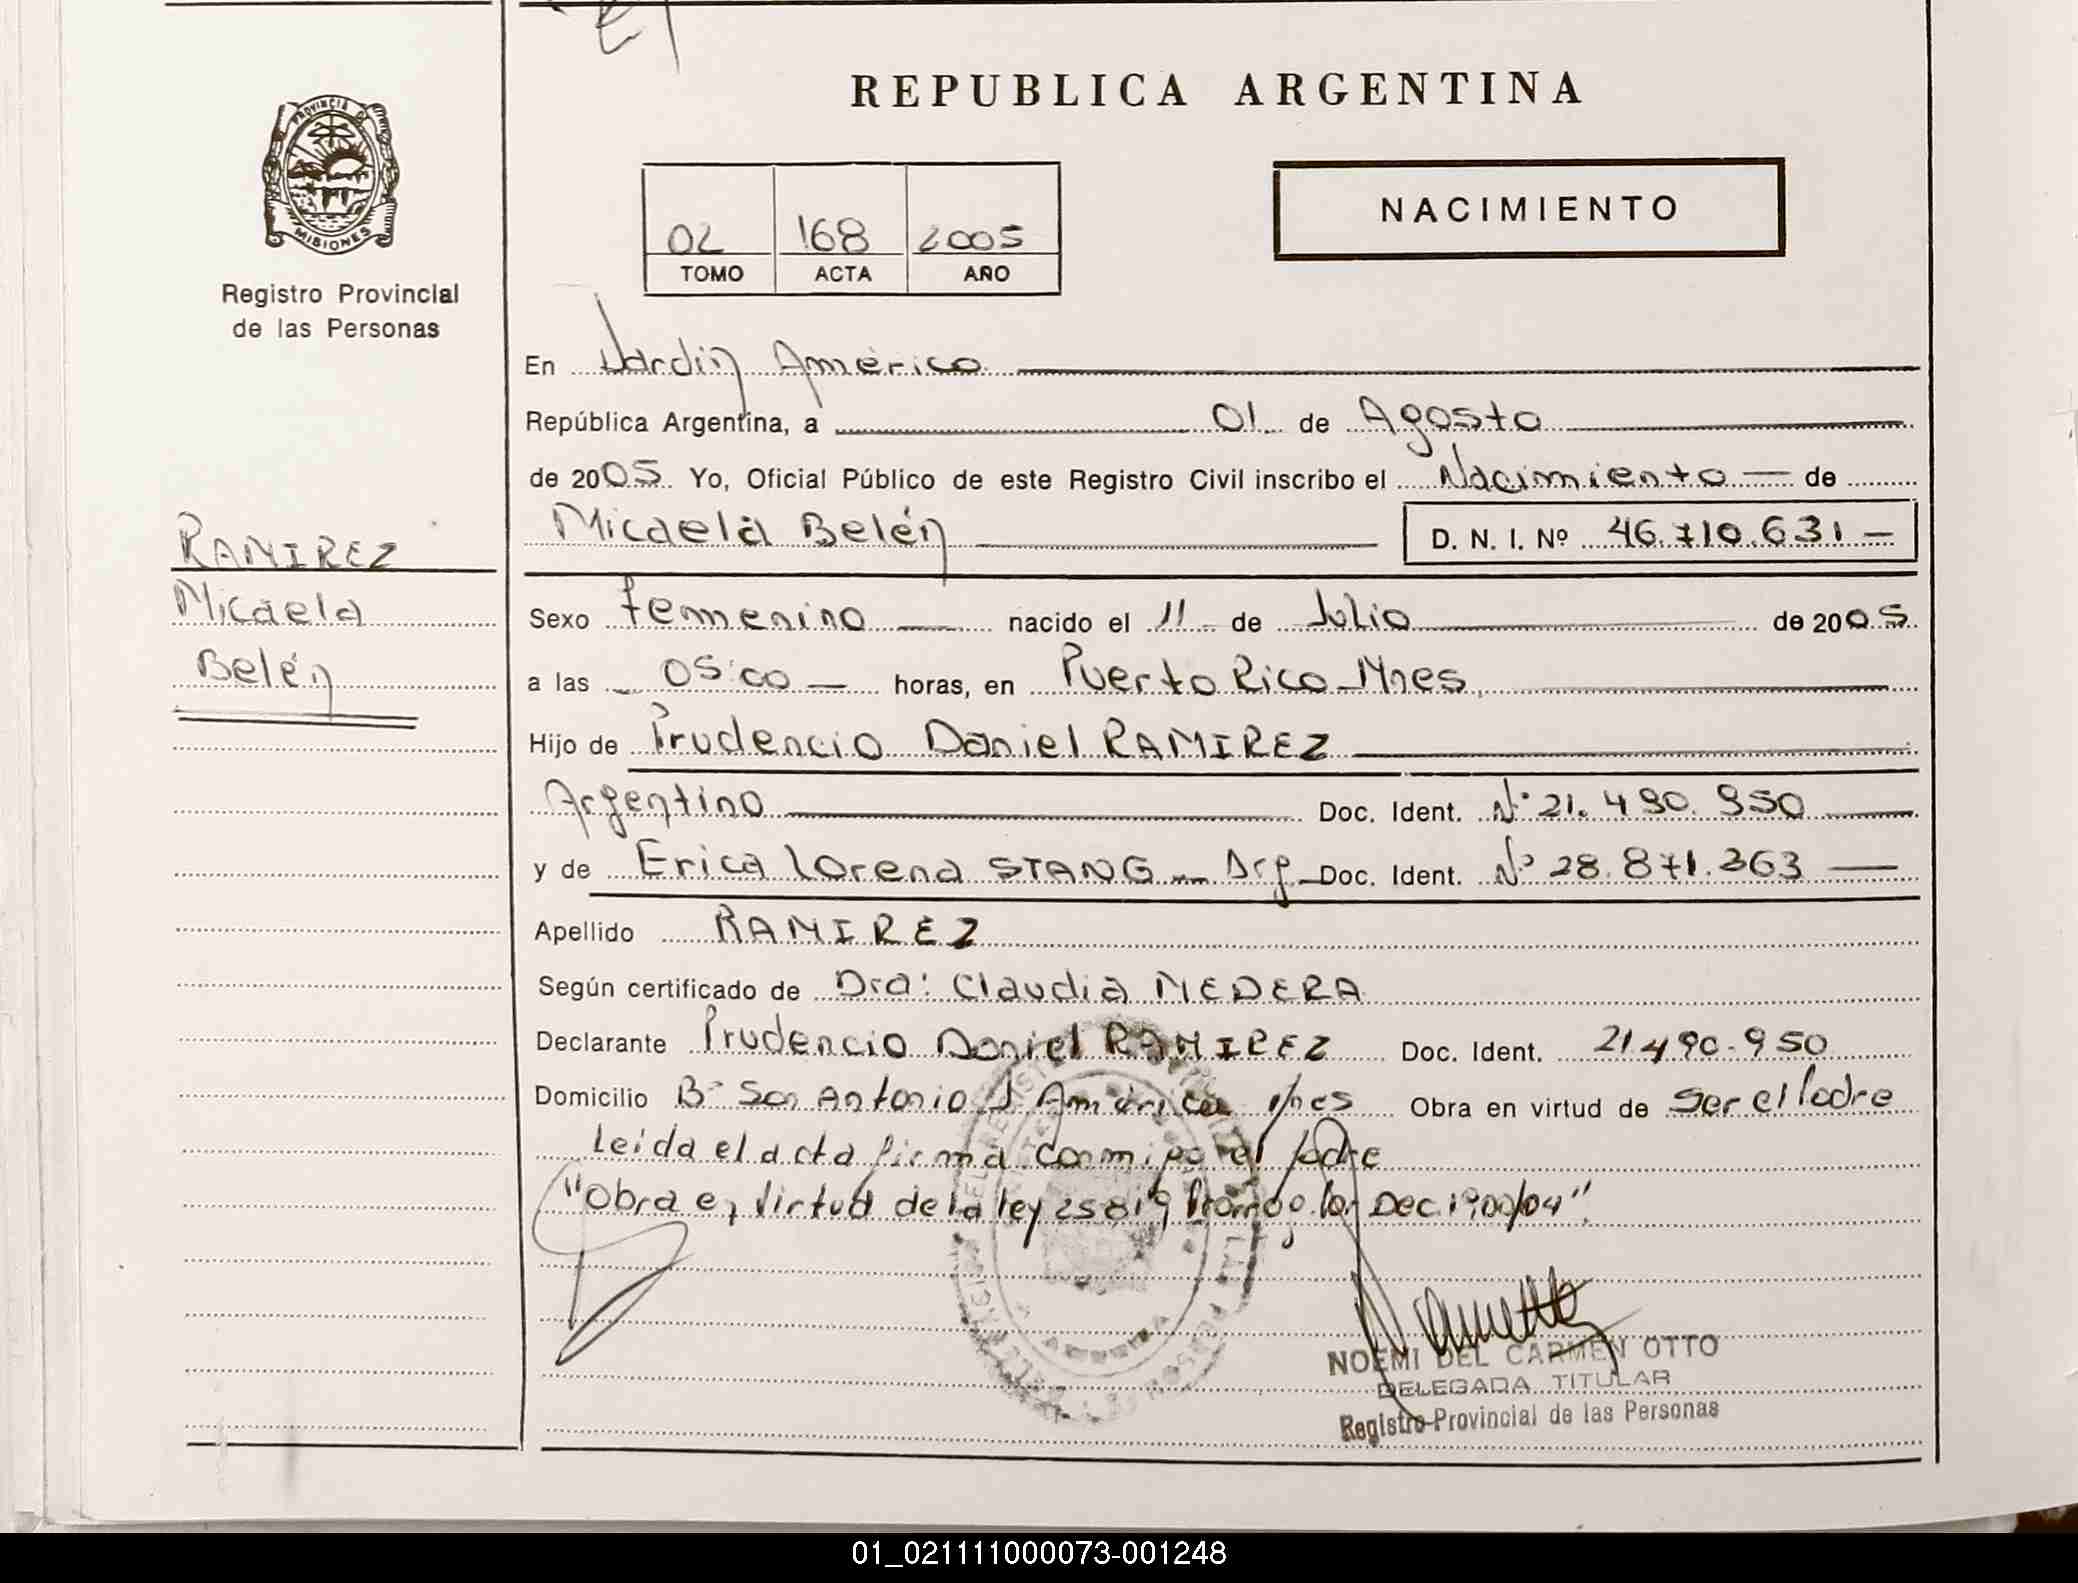 REPUBLICA ARGENTINA
PROVINCIA DE
MISIONES
Registro Provincial
de las Personas
02 168 2005
TOMO ACTA AÑO
NACIMIENTO
En Jardín América
República Argentina, a 01 de Agosto
de 2005 Yo, Oficial Público de este Registro Civil inscribo el Nacimiento de
Micaela Belén D. N. I. Nº 46.710.631
RAMIREZ
Micaela
Belén
Sexo femenino nacido el 11 de Julio de 2005
a las 05:00 horas, en Puerto Rico Mnes
Hijo de Prudencio Daniel RAMIREZ
Argentino Doc. Ident. Nº 21.490.950
y de Erica Lorena STANG Arg Doc. Ident. Nº 28.871.363
Apellido RAMIREZ
Según certificado de Dra: Claudia MEDERA
Declarante Prudencio Daniel RAMIREZ Doc. Ident. 21490.950
Domicilio Bº San Antonio J América Mnes Obra en virtud de Ser el Padre
Leída el acta firma conmigo el Padre
"Obra en virtud de la ley 25819 Prorrogo. por Dec 1900/04"
NOEMI DEL CARMEN OTTO
DELEGADA TITULAR
Registro Provincial de las Personas
01_021111000073-001248